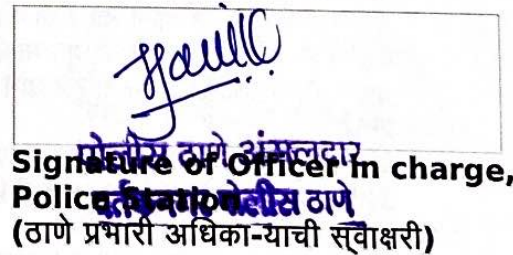 पोलीस ठाणे अंमलदार
Signature of Officer in charge,
Police Station
पोलीस ठाणे
(ठाणे प्रभारी अधिका-याची स्वाक्षरी)